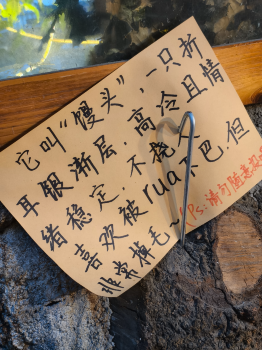 它叫“馒头”,一只折
耳银渐层,高冷且情
绪稳定,不挠人
喜欢被rua下巴,但
非常掉毛~
Ps:请勿随意投